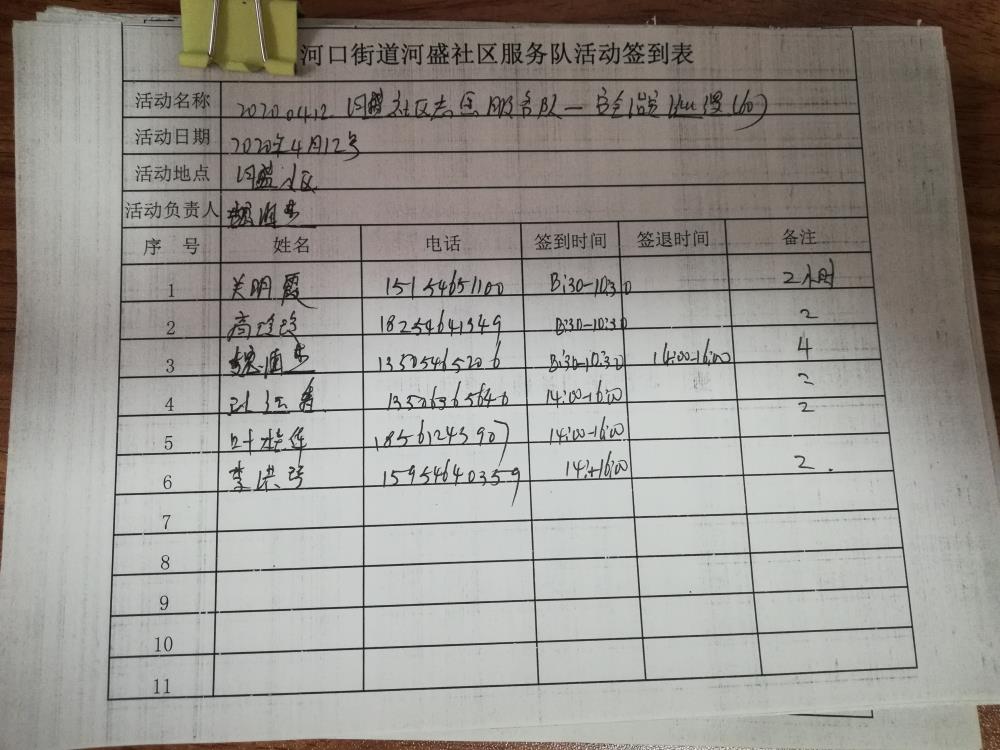 河口街道河盛社区服务队活动签到表
活动名称 20200412 河盛社区志愿服务队一
活动日期 2020年4月12号
活动地点 河盛社区
活动负责人
序号 姓名 电话 签到时间 签退时间 备注
1 关明霞 15154651100 8:30-10:30 2小时
2 高玲玲 18254641349 8:30-10:30 2
3 13505465206 8:30-10:30 14:00-16:00 4
4 13506365640 14:00-16:00 2
5 叶桂莲 18561243907 14:00-16:00 2
6 李洪 15954640359 16:00 2.
7
8
9
10
11